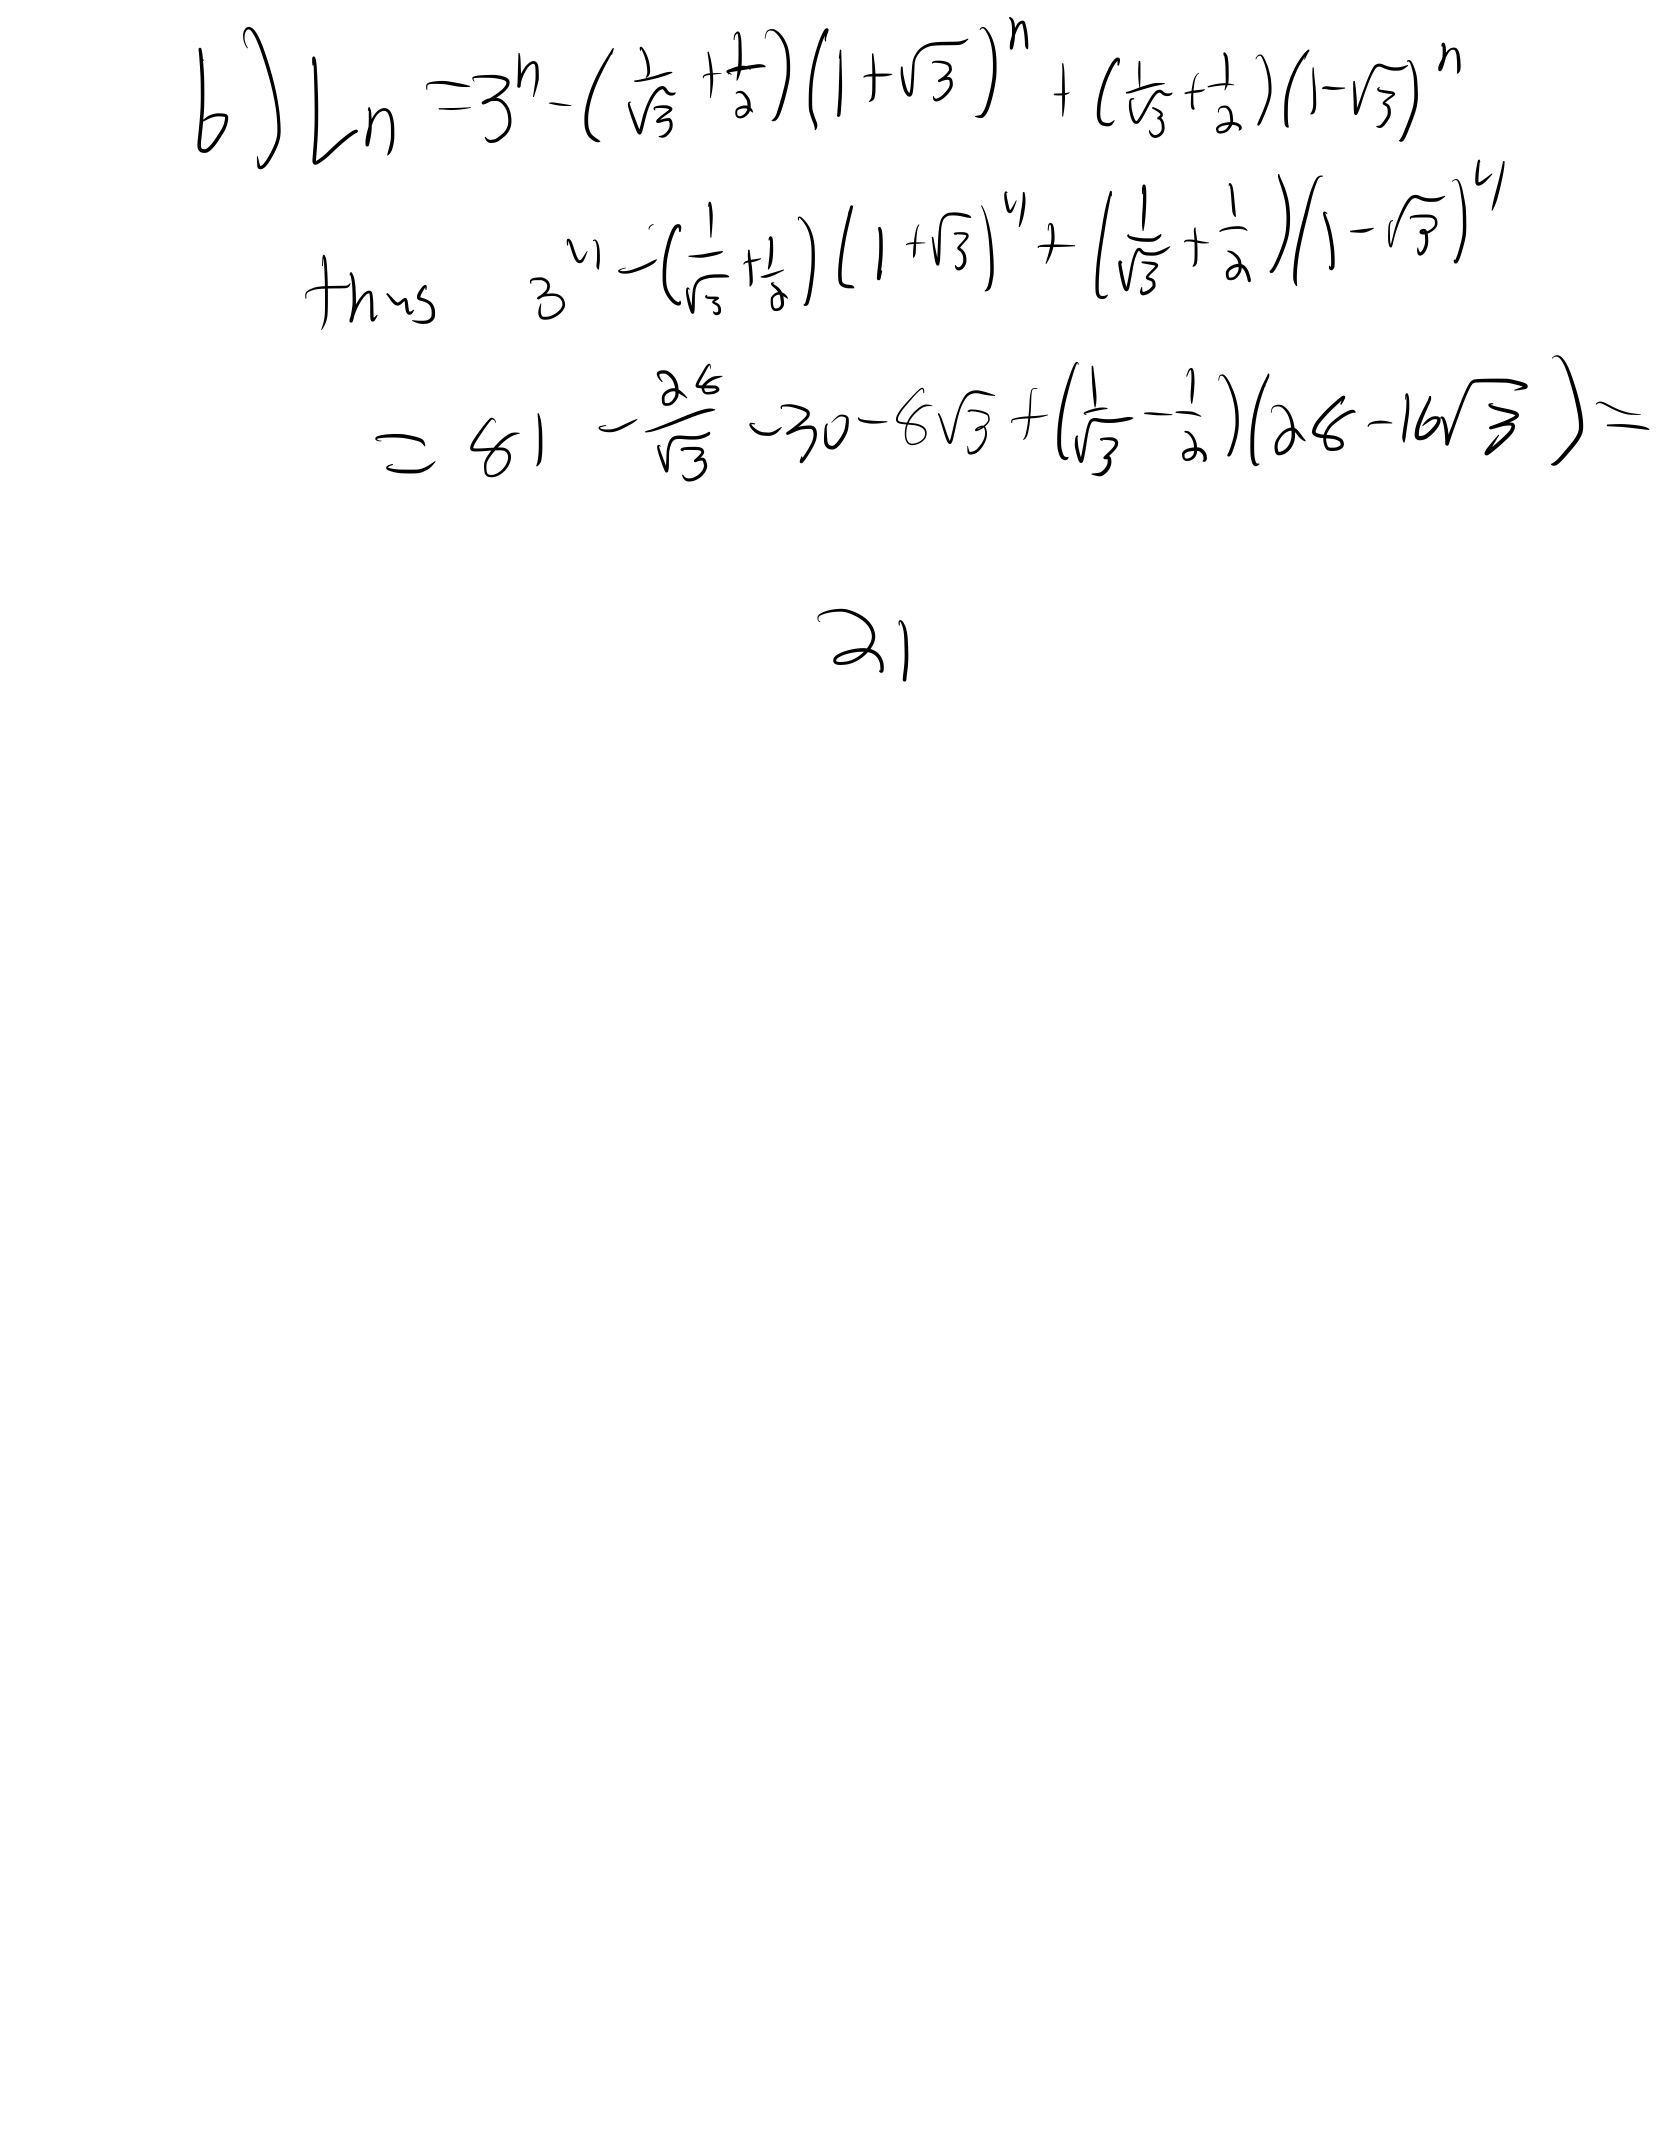 b) Ln = 3^n - (1/√3 + 1/2)(1+√3)^n + (1/√3 + 1/2)(1-√3)^n
thus 3^4 - (1/√3 + 1/2)(1+√3)^4 + (1/√3 + 1/2)(1-√3)^4
= 81 - 28/√3 - 30 - 8√3 + (1/√3 - 1/2)(28 - 16√3) =
21